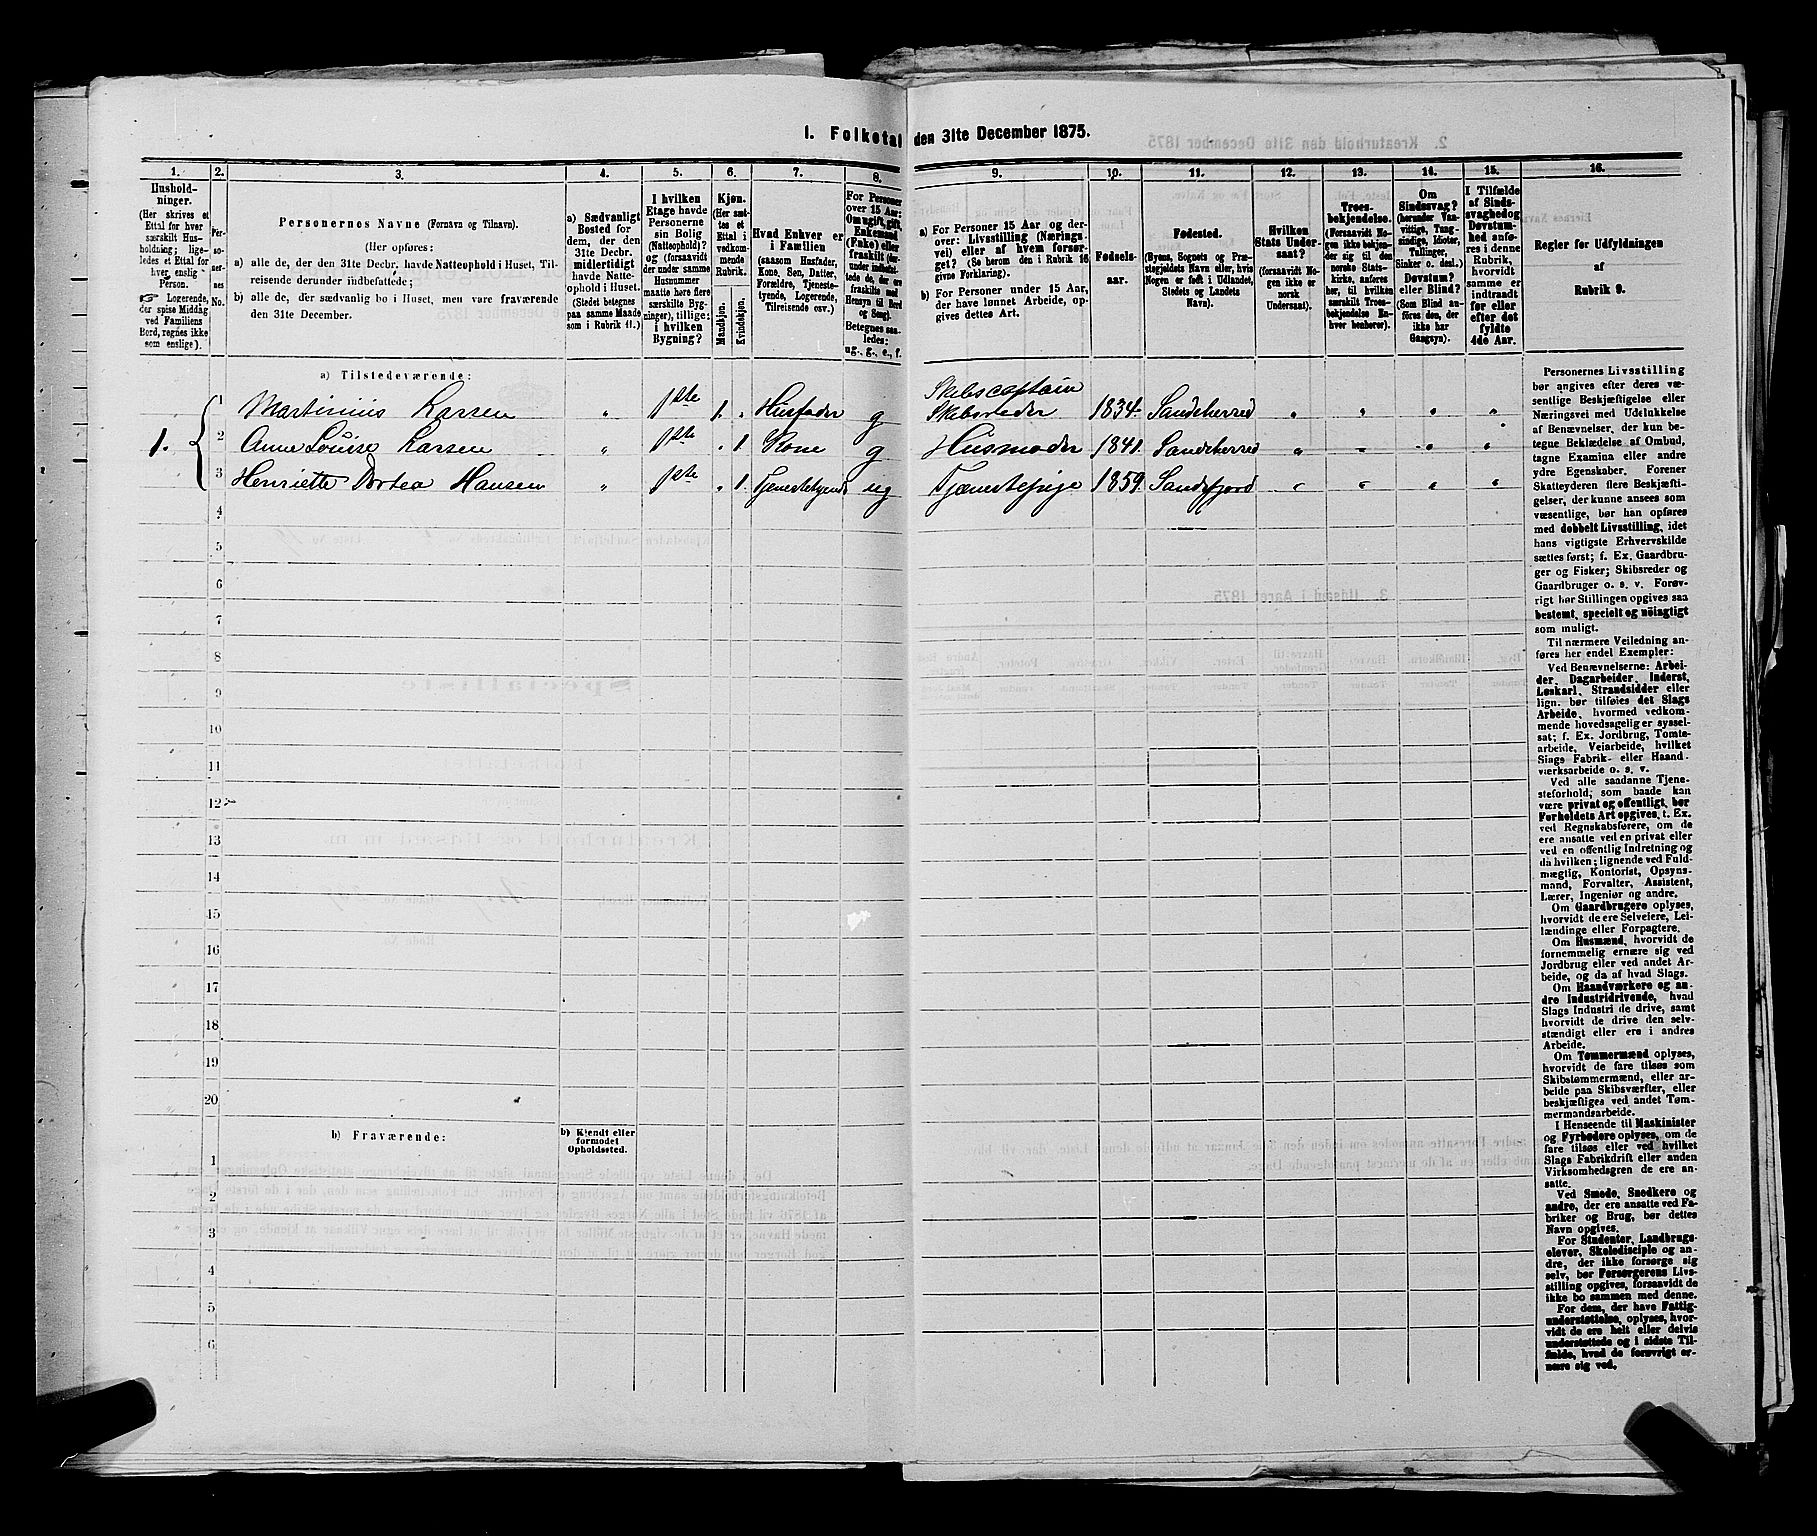 1. Folketal den 31te December 1875.
1. 2. 3. 4. 5. 6. 7. 8. 9. 10. 11. 12. 13. 14. 15. 16.
Hushold-
ninger.
(Her skrives et
Ettal for hver
særskilt Hus-
holdning; lige-
ledes et Ettal for
hver enslig
Person.
☞ Logerende,
der spise Middag
ved Familiens
Bord, regnes ikke
som enslige).
Per-
so-
ner-
nes
No.
Personernes Navne (Fornavn og Tilnavn).
(Her opføres:
a) alle de, der den 31te Decbr. havde Natteophold i Huset, Til-
reisende derunder indbefattede;
b) alle de, der sædvanlig bo i Huset, men vare fraværende
den 31te December.
a) Sædvanligt
Bosted for
dem, der den
31te Decbr.
midlertidigt
havde Natte-
ophold i Huset.
(Stedet betegnes
paa samme Maade
som i Rubrik 11.)
I hvilken
Etage havde
Personerne
sin Bolig
(Natteophold)?
og (forsaavidt
der under samme
Husnummer
maatte høre flere
særskilte Byg-
ninger), tillige:
i hvilken
Bygning?
Kjøn.
(Her sæt-
tes et
Ettal i
vedkom-
mende
Rubrik.
Mandkjøn.
Kvindekjøn.
Hvad Enhver er
i Familien
(saasom Husfader,
Kone, Søn, Datter,
Forældre, Tjeneste-
tyende, Logerende,
Tilreisende osv.)
For Personer
over 15 Aar:
Om ugift, gift,
Enkemand
(Enke) eller
fraskilt (der-
under indbefat-
tede de, der ere
fraskilte med
Hensyn til Bord
og Seng).
Betegnes saa-
ledes:
ug., g., e., f.
a) For Personer 15 Aar og der-
over: Livsstilling (Nærings-
vei) eller af hvem forsør-
get? (Se berom den i Rubrik 16
givne Forklaring).
b) For Personer under 15 Aar,
der have lønnet Arbeide, op-
gives dettes Art.
Fødsels-
aar.
Fødested.
(Byens, Sognets og Præ-
stegjeldets Navn eller, hvis
Nogen er født i Udlandet,
Stedets og Landets
Navn).
Hvilken
Stats Under-
saat?
(forsaavidt No-
gen ikke er
norsk
Undersaat).
Troes-
bekjendelse.
(Forsaavidt No-
gen ikke bekjen-
der sig til den
norske Stats-
kirke, anføres
her, til hvilken
særskilt Troes-
bekjendelse En-
hver henhører).
Om
Sindssvag?
(herunder Van-
vittige, Tung-
sindige, Idioter,
Tullinger,
Sinker o. desl.)
Døvstum?
eller Blind?
(Som Blind an-
føres den, der
ikke har
Gangsyn).
I Tilfælde
af Sinds-
svaghed og
Døvstum-
hed anfø-
res i denne
Rubrik,
hvorvidt
samme er
indtraadt
før eller
efter det
fyldte
4de Aar.
Regler for Udfyldningen
af
Rubrik 9.
a) Tilstedeværende:
Skibscaptain
1 Martinius Larsen " 1ste 1. " Husfader g Skibsreder 1834. Sandeherred " " " "
1. 2 Anne Louise Larsen " 1ste " 1 Kone g Husmoder 1841. Sandeherred " " " "
3 Henriette Dortea Hansen " 1ste " 1. Tjenestetyende ug Tjenestepige 1859. Sandefjord " " " "
4
5
6
7
8
9
10
11
12
13
14
15
16
17
18
19
20
b) Fraværende:
b) Kjendt eller
formodet
Opholdssted.
1
2
3
4
5
6
Personernes Livsstilling
bør angives efter deres væ-
sentlige Beskjæftigelse eller
Næringsvei med Udelukkelse
af Benævnelser, der kun be-
tegne Beklædelse af Ombud,
tagne Examina eller andre
ydre Egenskaber. Forener
Skatteyderen flere Beskjæfti-
gelser, der kunne ansees som
væsentlige, bør han opføres
med dobbelt Livsstilling, idet
hans vigtigste Erhvervskilde
sættes først; f. Ex. Gaardbru-
ger og Fisker; Skibsreder og
Gaardbruger o. s. v. Forøv-
rigt bør Stillingen opgives saa
bestemt, specielt og nöiagtigt
som muligt.
Til nærmere Veiledning an-
føres her endel Exempler:
Ved Benævnelserne: Arbei-
der, Dagarbeider, Inderst,
Løskarl, Strandsidder eller
lign. bør tilføies det Slags
Arbeide, hvormed vedkom-
mende hovedsagelig er syssel-
sat; f. Ex. Jordbrug, Tomte-
arbeide, Veiarbeide, hvilket
Slags Fabrik- eller Haand-
værksarbeide o. s. v.
Ved alle saadanne Tjene-
steforhold, som baade kan
være privat og offentligt, bør
Forholdets Art opgives, t. Ex.
ved Regnskabsførere, om de
ere ansatte ved en privat eller
ved en offentlig Indretning og
da hvilken; lignende ved Fuld-
mægtig, Kontorist, Opsyns-
mand, Forvalter, Assistent,
Lærer, Ingeniør og andre.
Om Gaardbrugere oplyses,
hvorvidt de ere Selveiere, Lei-
lændinge eller Forpagtere.
Om Husmænd, hvorvidt de
fornemmelig ernære sig ved
Jordbrug eller ved andet Ar-
beide, og da af hvad Slags.
Om Haandværkere og an-
dre Industridrivende, hvad
Slags Industri de drive, samt
hvorvidt de drive den selv-
stændigt eller ere i andres
Arbeide.
Om Tømmermænd oplyses,
hvorvidt de fare tilsøs som
Skibstømmermænd, eller ar-
beide paa Skibsværfter, eller
beskjæftiges ved andet Tøm-
mermandsarbeide.
I Henseende til Maskinister
og Fyrbødere oplyses, om de
fare tilsøs eller ved hvilket
Slags Fabrikdrift eller anden
Virksomhedsgren de ere an-
satte.
Ved Smede, Snedkere og
andre, der ere ansatte ved Fa-
briker og Brug, bør dettes
Navn opgives.
For Studenter, Landbrugs-
elever, Skoledisciple og an-
dre, der ikke forsørge sig
selv, bør Forsørgerens Livs-
stilling opgives, forsaavidt de
ikke bo sammen med denne.
For dem, der have Fattig-
understøttelse, oplyses, hvor-
vidt de ere helt eller delvis
understøttede og i sidste Til-
fælde, hvad de forøvrigt er-
nære sig ved.